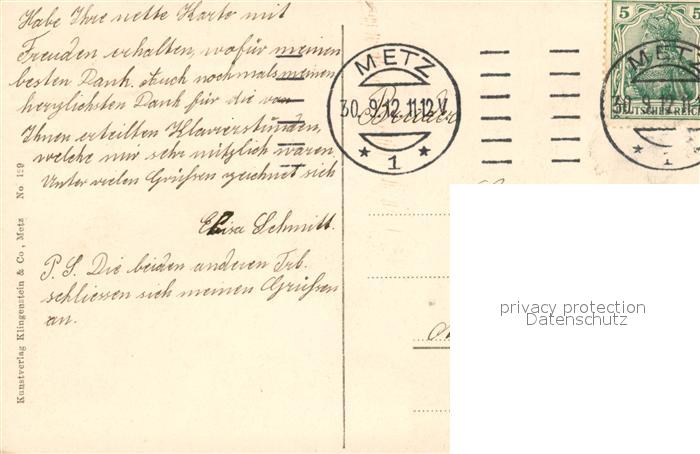 Habe Ihre nette Karte mit
Freuden erhalten, wofür meinen
besten Dank. Auch nochmals meinen
herzlichsten Dank für die von
Ihnen erteilten Klavierstunden,
welche mir sehr nützlich waren.
Unter vielen Grüßen zeichnet sich
Elisa Schmitt.
P. S. Die beiden anderen Frl.
schliessen sich meinen Grüßen
an.
Kunstverlag Klingenstein & Co, Metz No 129
METZ
30. 9.12. 11-12 V.
* 1 *
5 5
DEUTSCHES REICH
METZ
30. 9. 12. 11
* 1
privacy protection
Datenschutz